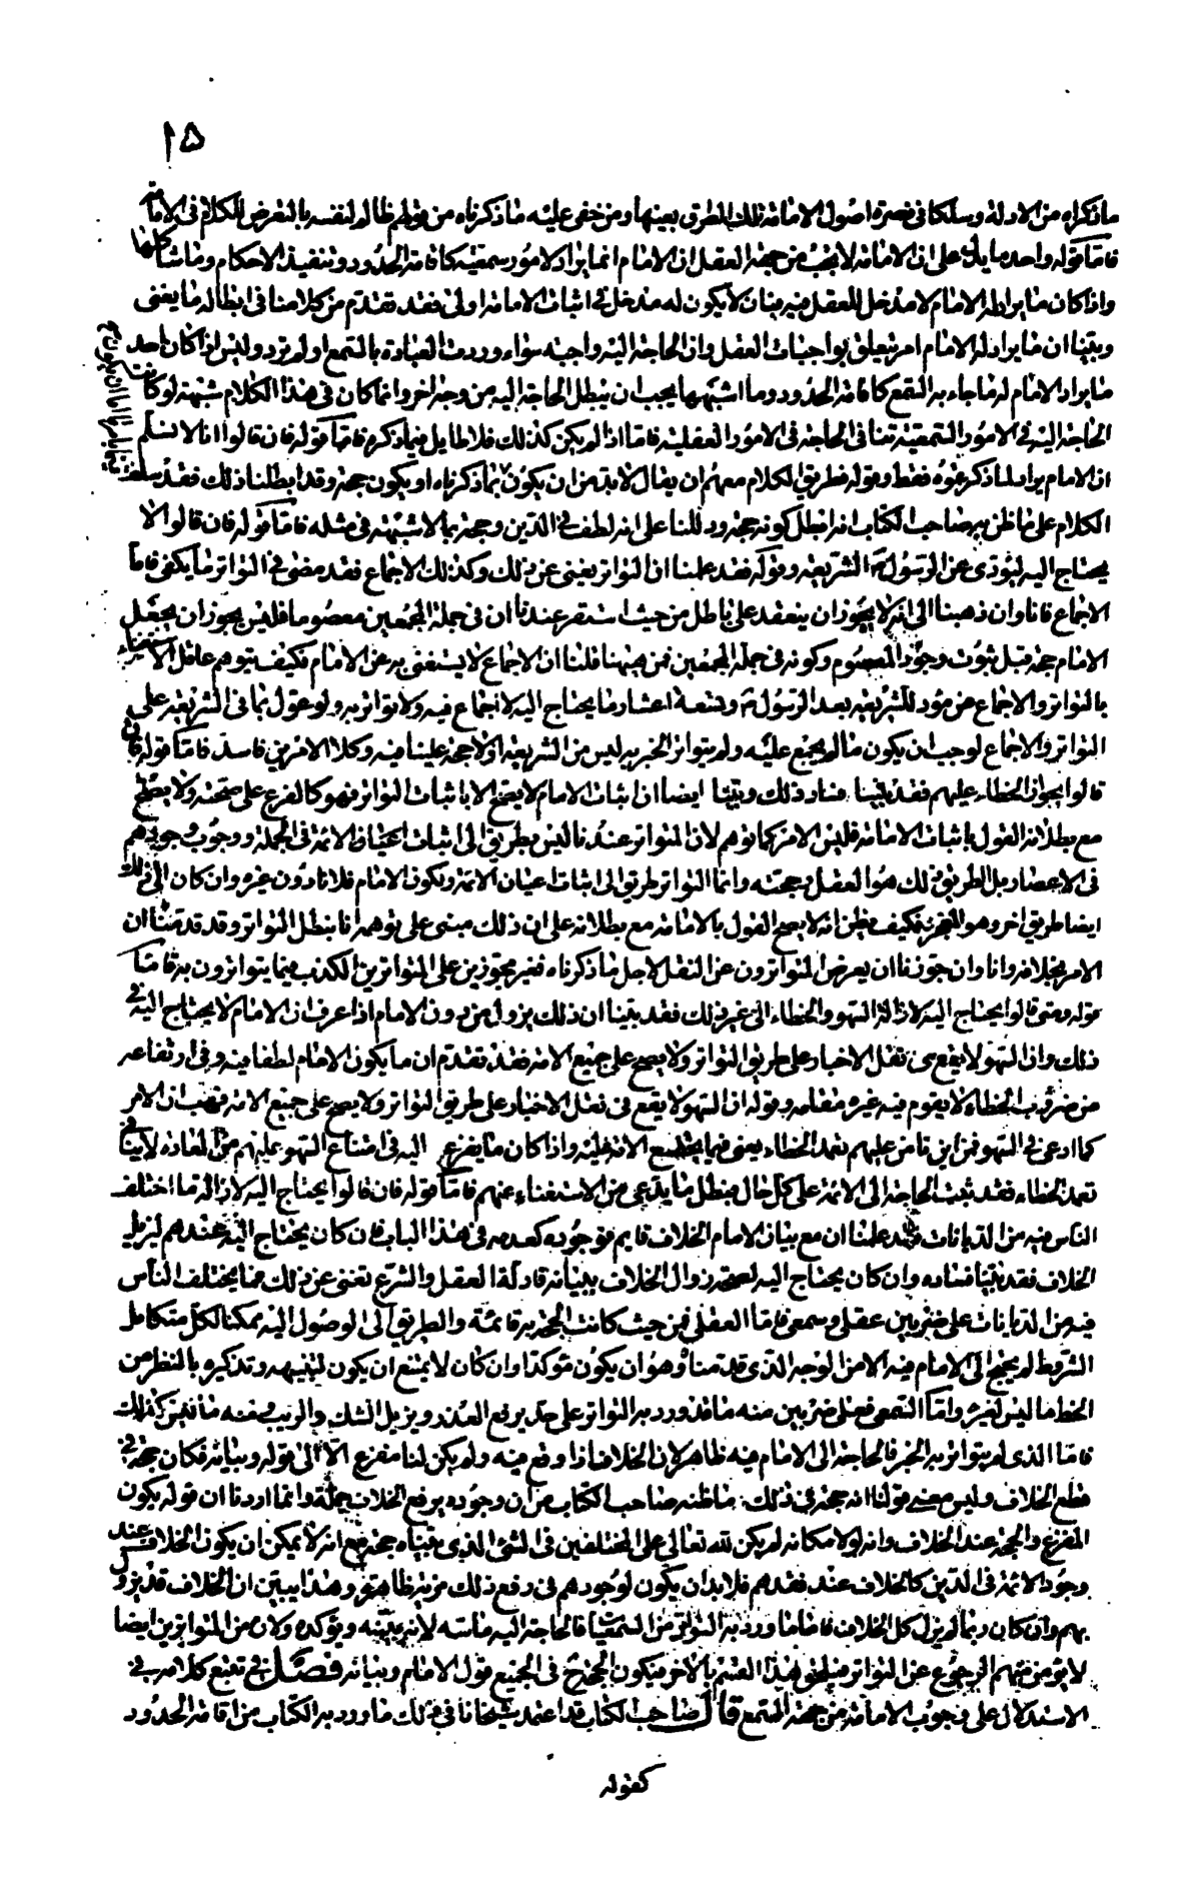 ٢٥
ما ذكراه من الادلة وسلكا في نصرة اصول الامامة تلك الطرق بعينها ومن خفى عليه ما ذكرناه من قولهم ظالم لنفسه بالتعرض للكلام في الامامة
فاما قوله واحد ما يدل على ان الامامة لا تجب من جهة العقل ان الامام انما يراد لامور سمعية كاقامة الحدود وتنفيذ الاحكام وما شاكلها
واذا كان ما يراد له الامام لا مدخل للعقل فيه فبان لا يكون له مدخل في اثبات الامامة اولى فقد تقدم من كلامنا في ابطاله ما يغنى
وبينا ان ما يراد له الامام امر يتعلق بواجبات العقل وان الحاجة اليه واجبة سواء وردت العبادة بالسمع او لم ترد وليس اذا كان احد
ما يراد الامام له ما جاء به السمع كاقامة الحدود وما اشبهها يجب ان تبطل الحاجة اليه من وجه اخر وانما كان في هذا الكلام شبهة لو كانت
الحاجة اليه في الامور السمعية تنافى الحاجة في الامور العقلية فاما اذا لم يكن كذلك فلا طايل فيما ذكره فاما قوله فان قالوا انا لا نسلم
ان الامام يراد لما ذكرتموه فقط وقوله فطريق الكلام معهم ان يقال لا بد من ان يكون بما ذكرناه او يكون حجة وقد ابطلنا ذلك فقد سلف
الكلام على ما ظن صاحب الكتاب انه ابطل كونه حجة ودللنا على انه لطف في الدين وحجة بما لا شبهة في مثله فاما قوله فان قالوا الا
يحتاج اليه ليؤدى عن الرسول الشريعة وقوله فقد علمنا ان التواتر يغنى عن ذلك وكذلك الاجماع فقد مضى في التواتر ما يكفى فاما
الاجماع فانا وان ذهبنا الى انه لا يجوز ان ينعقد على باطل من حيث استقر عندنا ان في جملة المجمعين معصوما فليس يجوز ان يجعل
الامام حجة قبل ثبوت وجود المعصوم وكونه في جملة المجمعين فمن هيهنا قلنا ان الاجماع لا يستغنى به عن الامام فكيف يتوهم عاقل الاستغناء
بالتواتر والاجماع عن مؤد للشريعة بعد الرسول وتسعة اعشار ما يحتاج اليه لا اجماع فيه ولا تواتر به ولو عول بما في الشريعة على
التواتر والاجماع لوجب ان يكون ما لم يجمع عليه ولم يتواتر الخبر به ليس من الشريعة او لا حجة علينا فيه وكلا الامرين فاسد فاما قوله فان
قالوا بجواز الخطاء عليهم فقد بينا فساد ذلك وبينا ايضا ان اثبات الامام لا يصح الا باثبات التواتر فهو كالفرع على صحته ولا يصح
مع بطلانه القول باثبات الامامة فليس الامر كما توهم لان المتواتر عندنا ليس بطريق الى اثبات اعيان الائمة في الجملة ووجوب وجودهم
في الاعصار بل الطريق في ذلك هو العقل وحجته وانما التواتر طريق الى اثبات اعيان الائمة وكون الامام فلانا دون غيره وان كان الى ذلك
ايضا طريق اخر وهو المعجز فكيف يظن انه لا يصح القول بالامامة مع بطلانه على ان ذلك مبنى على توهمه انا نبطل التواتر وقد قدمنا ان
الامر بخلافه وانا وان جوزنا ان يعرض المتواترون عن النقل لاجل ما ذكرناه فغير مجوزين على المتواترين الكذب فيما يتواترون به فاما
قوله ومتى قالوا يحتاج اليه لازالة السهو والخطاء الى غير ذلك فقد بينا ان ذلك يزول من دون الامام اذا عرف ان الامام لا يحتاج اليه في
ذلك وان السهو لا يقع في نقل الاخبار على طريق التواتر ولا يصح على جميع الامة فقد تقدم ان ما يكون الامام لطفا فيه وفي ارتفاعه
من ضروب الخطاء لا يقوم فيه غيره مقامه وقوله ان السهو لا يقع في نقل الاخبار على طريق التواتر ولا يصح على جميع الامة فهب ان الامر
كما ادعى في السهو فمن اين قامن عليهم تعمد الخطاء يعنى فيما يجتمع الامة عليه واذا كان ما يفزع اليه في امتناع السهو عليهم من العادة لا يتاتى في
تعمد الخطاء فقد ثبت الحاجة الى الائمة على كل حال وبطل ما يدعى من الاستغناء عنهم فاما قوله فان قالوا يحتاج اليه لازالة ما اختلف
الناس فيه من الديانات وقد علمنا ان مع بيان الامام الخلاف قايم فوجوده كعدمه في هذا الباب فان كان يحتاج اليه عندهم ليزيل
الخلاف فقد بينا فساده وان كان يحتاج اليه لصحة زوال الخلاف ببيانه فادلة العقل والشرع تغنى عن ذلك فما يختلف الناس
فيه من الديانات على ضربين عقلى وسمعى فاما العقلى فمن حيث كانت الحجة به قائمة والطريق الى الوصول اليه ممكنا لكل متكامل
الشروط لم يحتج الى الامام فيه الا من الوجه الذى قدمناه وهو ان يكون مؤكدا وان كان لا يمتنع ان يكون لتنبيهه وتذكيره بالنظر من
الحظ ما ليس لغيره واما السمعى فعلى ضربين منه ما قد ورد به التواتر على حد يرفع العذر ويزيل الشك والريب ومنه ما ليس كذلك
فاما الذى لم يتواتر به الخبر فالحاجة الى الامام فيه ظاهرة لان الخلاف اذا وقع فيه ولم يكن لنا مفزع الا الى قوله وبيانه فكان حجة في
قطع الخلاف وليس معنى قولنا انه حجة في ذلك ما ظنه صاحب الكتاب من ان وجوده يرفع الخلاف جملة وانما اردنا ان قوله يكون
المفزع والحجة عند الخلاف وانه لولا مكانه لم يكن لله تعالى على المختلفين في الشئ الذى بيناه حجة مع انه لا يمكن ان يكون الخلاف عند
وجود الائمة في الدين كالخلاف عند فقدهم فلا بد ان يكون لوجودهم في رفع ذلك مزية ظاهرة وهذا يبين ان الخلاف قد يزول
بهم وان كان ربما لم يزل كل الخلاف فاما ما ورد به التواتر من السمعيات فالحاجة اليه ماسة لانه يبينه ويؤكده ولان من المتواترين ايضا
لا يؤمن منهم الرجوع عن التواتر فيلحق هذا القسم بالاخر فيكون الحجة في الجميع قول الامام وبيانه فصل في تتبع كلامه في
الاستدلال على وجوب الامامة من جهة السمع قال صاحب الكتاب قد اعتمد شيخانا في ذلك ما ورد به الكتاب من اقامة الحدود
كقوله